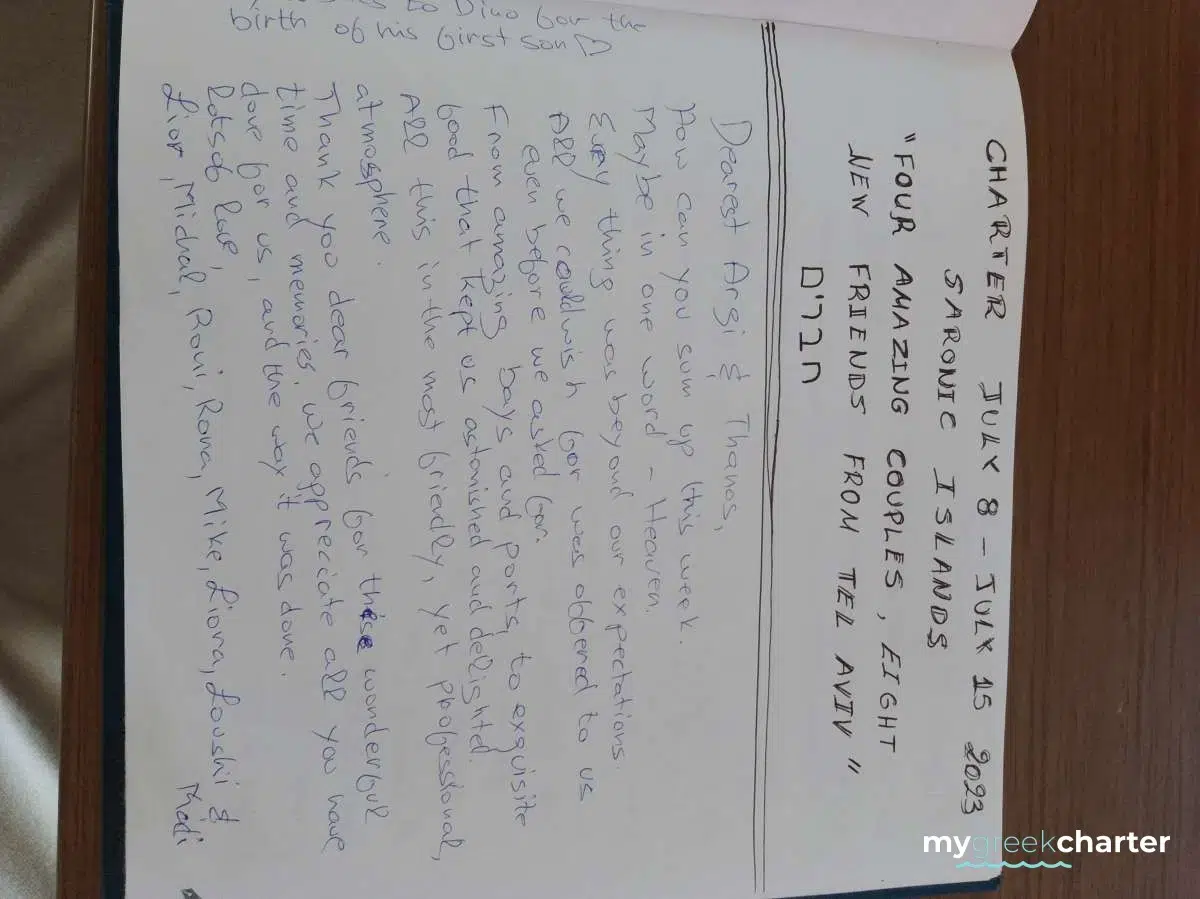 CHARTER JULY 8 - JULY 15 2023
SARONIC ISLANDS
"FOUR AMAZING COUPLES, EIGHT
NEW FRIENDS FROM TEL AVIV"
חברים
Dearest Argi & Thanos,
How can you sum up this week.
Maybe in one word - Heaven.
Every thing was beyond our expectations.
All we could wish for was offered to us
even before we asked for.
From amazing bays and ports, to exquisite
food that kept us astonished and delighted.
All this in the most friendly, yet professional,
atmosphere.
Thank you dear friends for these wonderful
time and memories. we appreciate all you have
done for us, and the way it was done.
Lots of love,
Lior, Michal, Roni, Rona, Mike, Liora, Loushi &
to Dino for the
birth of his first son
mygreekcharter